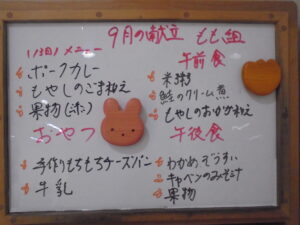 9月の献立 もも組
1/3(日) メニュー
ポークカレー
もやしのごま和え
果物(バナナ)
おやつ
手作りもちもちチーズパン
牛乳
午前食
米粥
鮭のクリーム煮
もやしのおかか和え
午後食
わかめぞうすい
キャベツのみそ汁
果物